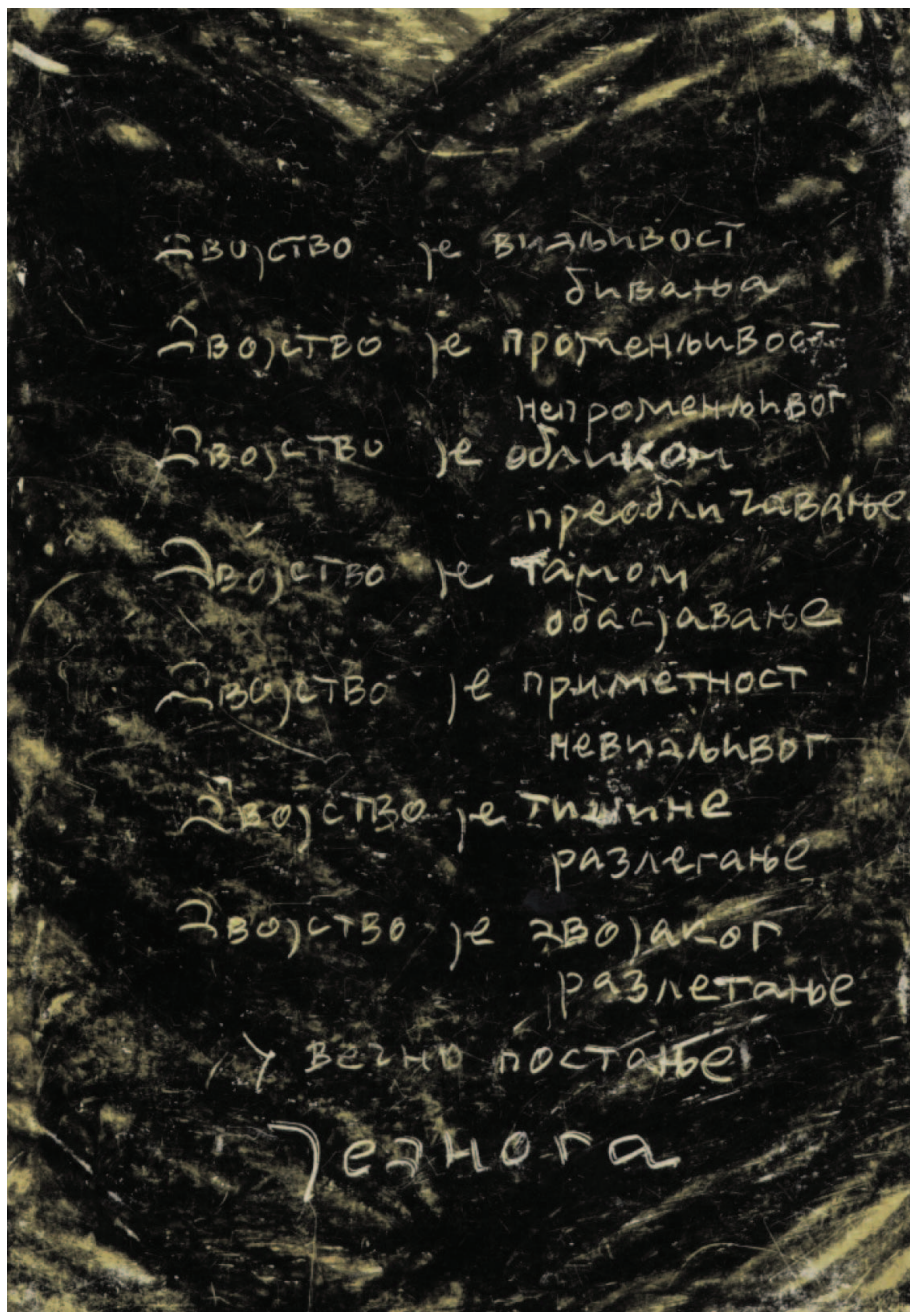 Двојство је видљивост
бивања
Двојство је променљивост
непроменљивог
Двојство је обликом
преобличавање
Двојство је тамом
обасјавање
Двојство је приметност
невидљивог
Двојство је тишине
разлегање
Двојство је двојаког
разлетање
у вечно постање
Једнога